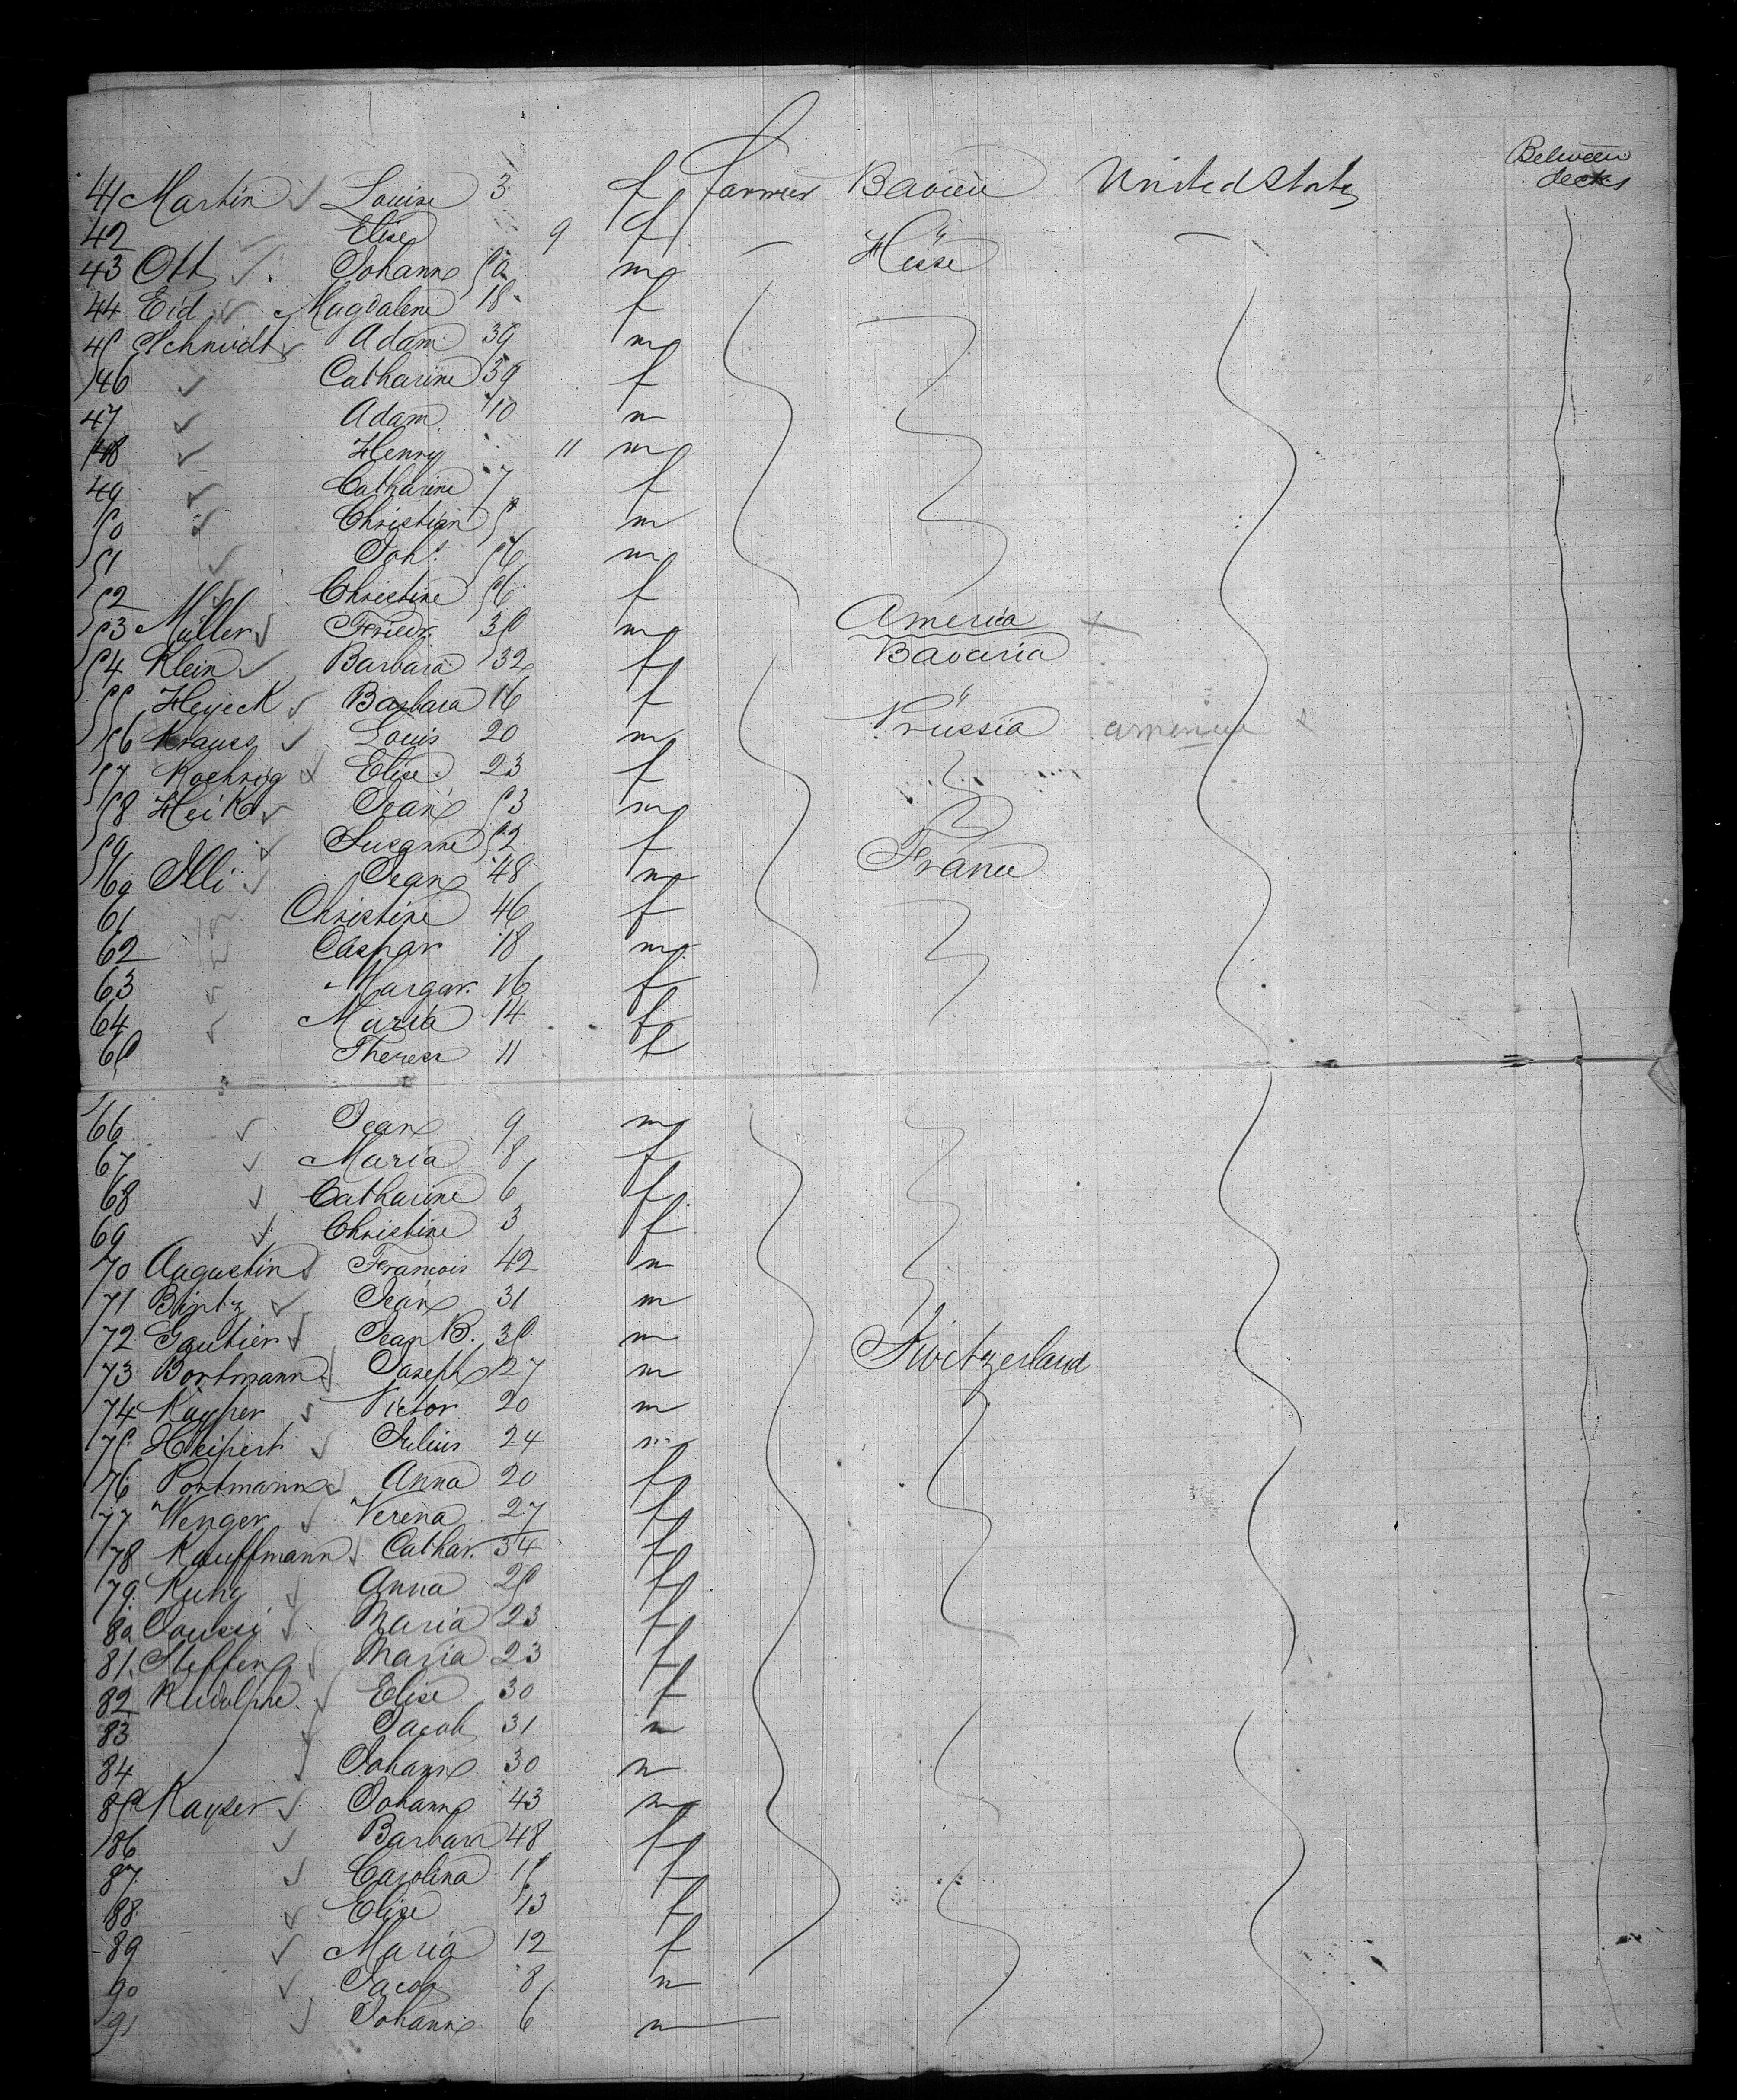 Between decks
41 Martin Louise 3 f farmer Baviere United States
42 Elise 9 f "
43 Ott Johann 50 m — Hesse —
44 Eid Magdalene 18 f
45 Schmidt Adam 39 m
46 Catharine 39 f
47 Adam 10 m
48 Henry 11 m
49 Catharine 7 f
50 Christian 5 m
51 Joh. 56 m
52 Christine 56 f
53 Müller Friedr. 35 m America +
54 Klein Barbara 32 f Bavaria
55 Heyeck Barbara 16 f "
56 Krauss Louis 20 m Prussia america +
57 Koehrig Elise 23 f
58 Heik Jean 53 m
59 Susanne 52 f
60 Illi Jean 48 m France
61 Christine 46 f
62 Caspar 18 m
63 Margar. 16 f
64 Maria 14 f
65 Theresa 11 f
66 Jean 9 m
67 Maria 8 f
68 Catharine 6 f
69 Christine 3 f
70 Augustin Francois 42 m
71 Bintz Jean 31 m
72 Gautier Jean B. 35 m
73 Bortmann Joseph 27 m Switzerland
74 Kayser Victor 20 m
75 Julius 24 m
76 Portmann Anna 20 f
77 Wenger Verena 27 f
78 Kauffmann Cathar. 34 f
79 Kung Anna 25 f
80 Maria 23 f
81 Steffen Maria 23 f
82 Rudolphe Elise 30 f
83 Jacob 31 m
84 Johann 30 m
85 Kayser Johann 43 m
86 Barbara 48 f
87 Carolina 15 f
88 Elise 13 f
89 Maria 12 f
90 Jacob 8 m
91 Johann 6 m